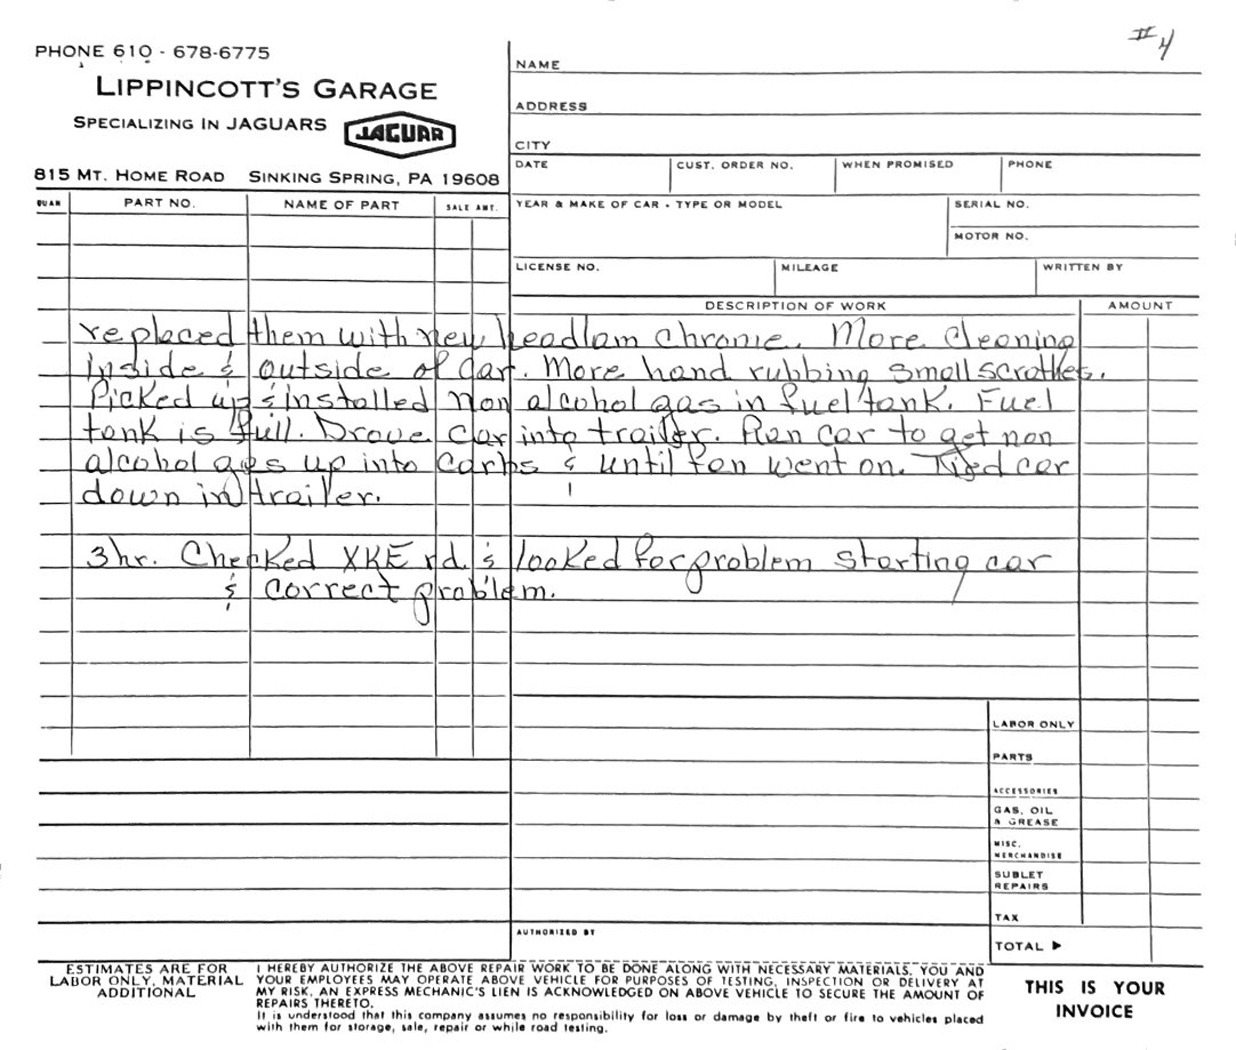 #4
PHONE 610 - 678-6775
LIPPINCOTT'S GARAGE
SPECIALIZING IN JAGUARS
JAGUAR
815 MT. HOME ROAD SINKING SPRING, PA 19608
NAME
ADDRESS
CITY
DATE CUST. ORDER NO. WHEN PROMISED PHONE
QUAN PART NO. NAME OF PART SALE AMT.
YEAR & MAKE OF CAR - TYPE OR MODEL SERIAL NO.
MOTOR NO.
LICENSE NO. MILEAGE WRITTEN BY
DESCRIPTION OF WORK AMOUNT
replaced them with new headlam chrome. More cleaning
inside & outside of car. More hand rubbing small scrathes.
Picked up & installed non alcohol gas in fuel tank. Fuel
tank is full. Drove car into trailer. Ran car to get non
alcohol gas up into carbs & until fan went on. Tied car
down in trailer.
3 hr. Checked XKE rd. & looked for problem starting car
& correct problem.
LABOR ONLY
PARTS
ACCESSORIES
GAS, OIL
& GREASE
MISC.
MERCHANDISE
SUBLET
REPAIRS
TAX
AUTHORIZED BY
TOTAL ▶
ESTIMATES ARE FOR
LABOR ONLY, MATERIAL
ADDITIONAL
I HEREBY AUTHORIZE THE ABOVE REPAIR WORK TO BE DONE ALONG WITH NECESSARY MATERIALS. YOU AND
YOUR EMPLOYEES MAY OPERATE ABOVE VEHICLE FOR PURPOSES OF TESTING, INSPECTION OR DELIVERY AT
MY RISK. AN EXPRESS MECHANIC'S LIEN IS ACKNOWLEDGED ON ABOVE VEHICLE TO SECURE THE AMOUNT OF
REPAIRS THERETO.
It is understood that this company assumes no responsibility for loss or damage by theft or fire to vehicles placed
with them for storage, sale, repair or while road testing.
THIS IS YOUR
INVOICE